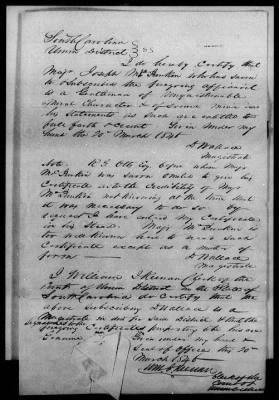 South Carolina
Union District } SS
I do hereby Certify that
Majr Joseph McJunkin who has sworn
to & subscribed the foregoing
is a Gentleman of unquestionable
Moral Character & of Sound mind and
his statements as such are entitled to
full faith & credit Given under my
hand the 20th March 1846
D Wallace
Magistrate
Note. R. G. Otts Esqr when Majr
McJunkin was sworn omitted to give his
Certificate as to the Credibility of Majr
McJunkin not knowing at the time that
it was necessary to do so. By
request I have added my Certificate
in his Stead. Majr McJunkin is
too well known here to need such
Certificate except as a matter of
form
D Wallace
Magistrate
I William I Keenan Clerk of the
Court of Union District in the State of
South Carolina do Certify that the
above subscribing D Wallace is a
Magistrate in and for said District & that
Signature to the
foregoing Certificate purporting to be his are
Genuine
Given under my hand &
Seal of office the 20th
March 1846
Wm I Keenan
Clerk of the
Court of
Union District